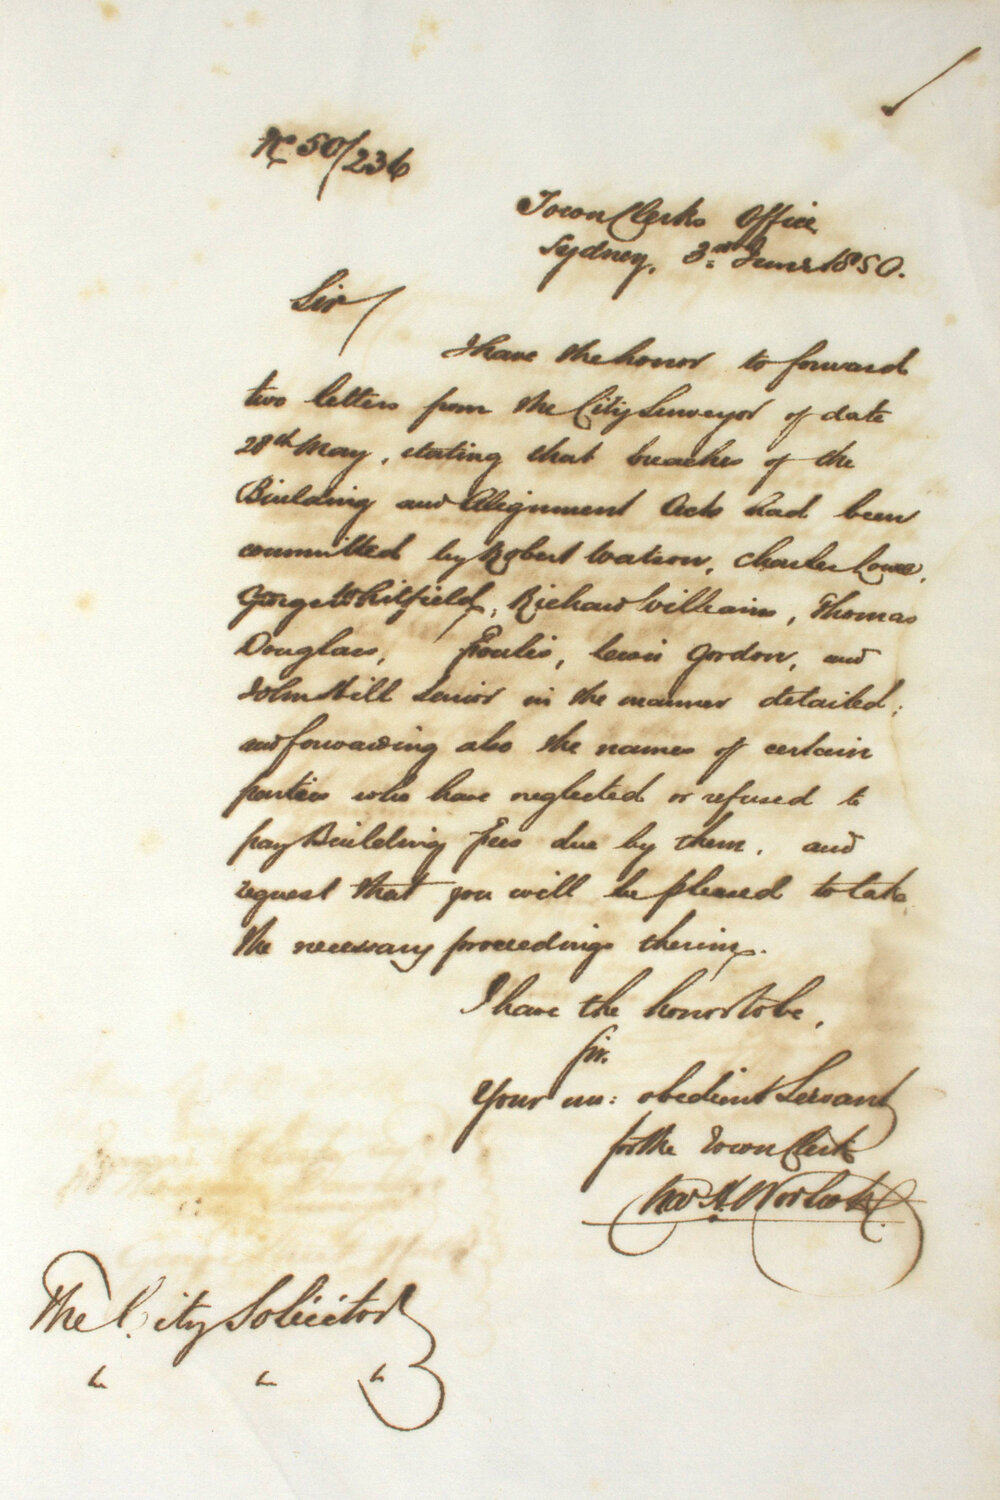 No 50/236
Town Clerks Office
Sydney, 3rd June 1850.
Sir
I have the honor to forward
two letters from the City Surveyor of date
28th May, stating that breaches of the
Building and Alignment Acts had been
committed by Robert Watson, Charles Lowe,
George Whitfield, Richard Williams, Thomas
Douglass, Foulis, Lewis Gordon, and
John Hill Senior in the manner detailed;
and forwarding also the names of certain
parties who have neglected or refused to
pay Building Fees due by them, and
request that you will be pleased to take
the necessary proceedings therein.
I have the honor to be,
Sir,
Your obedient Servant
for the Town Clerk
The City Solicitor